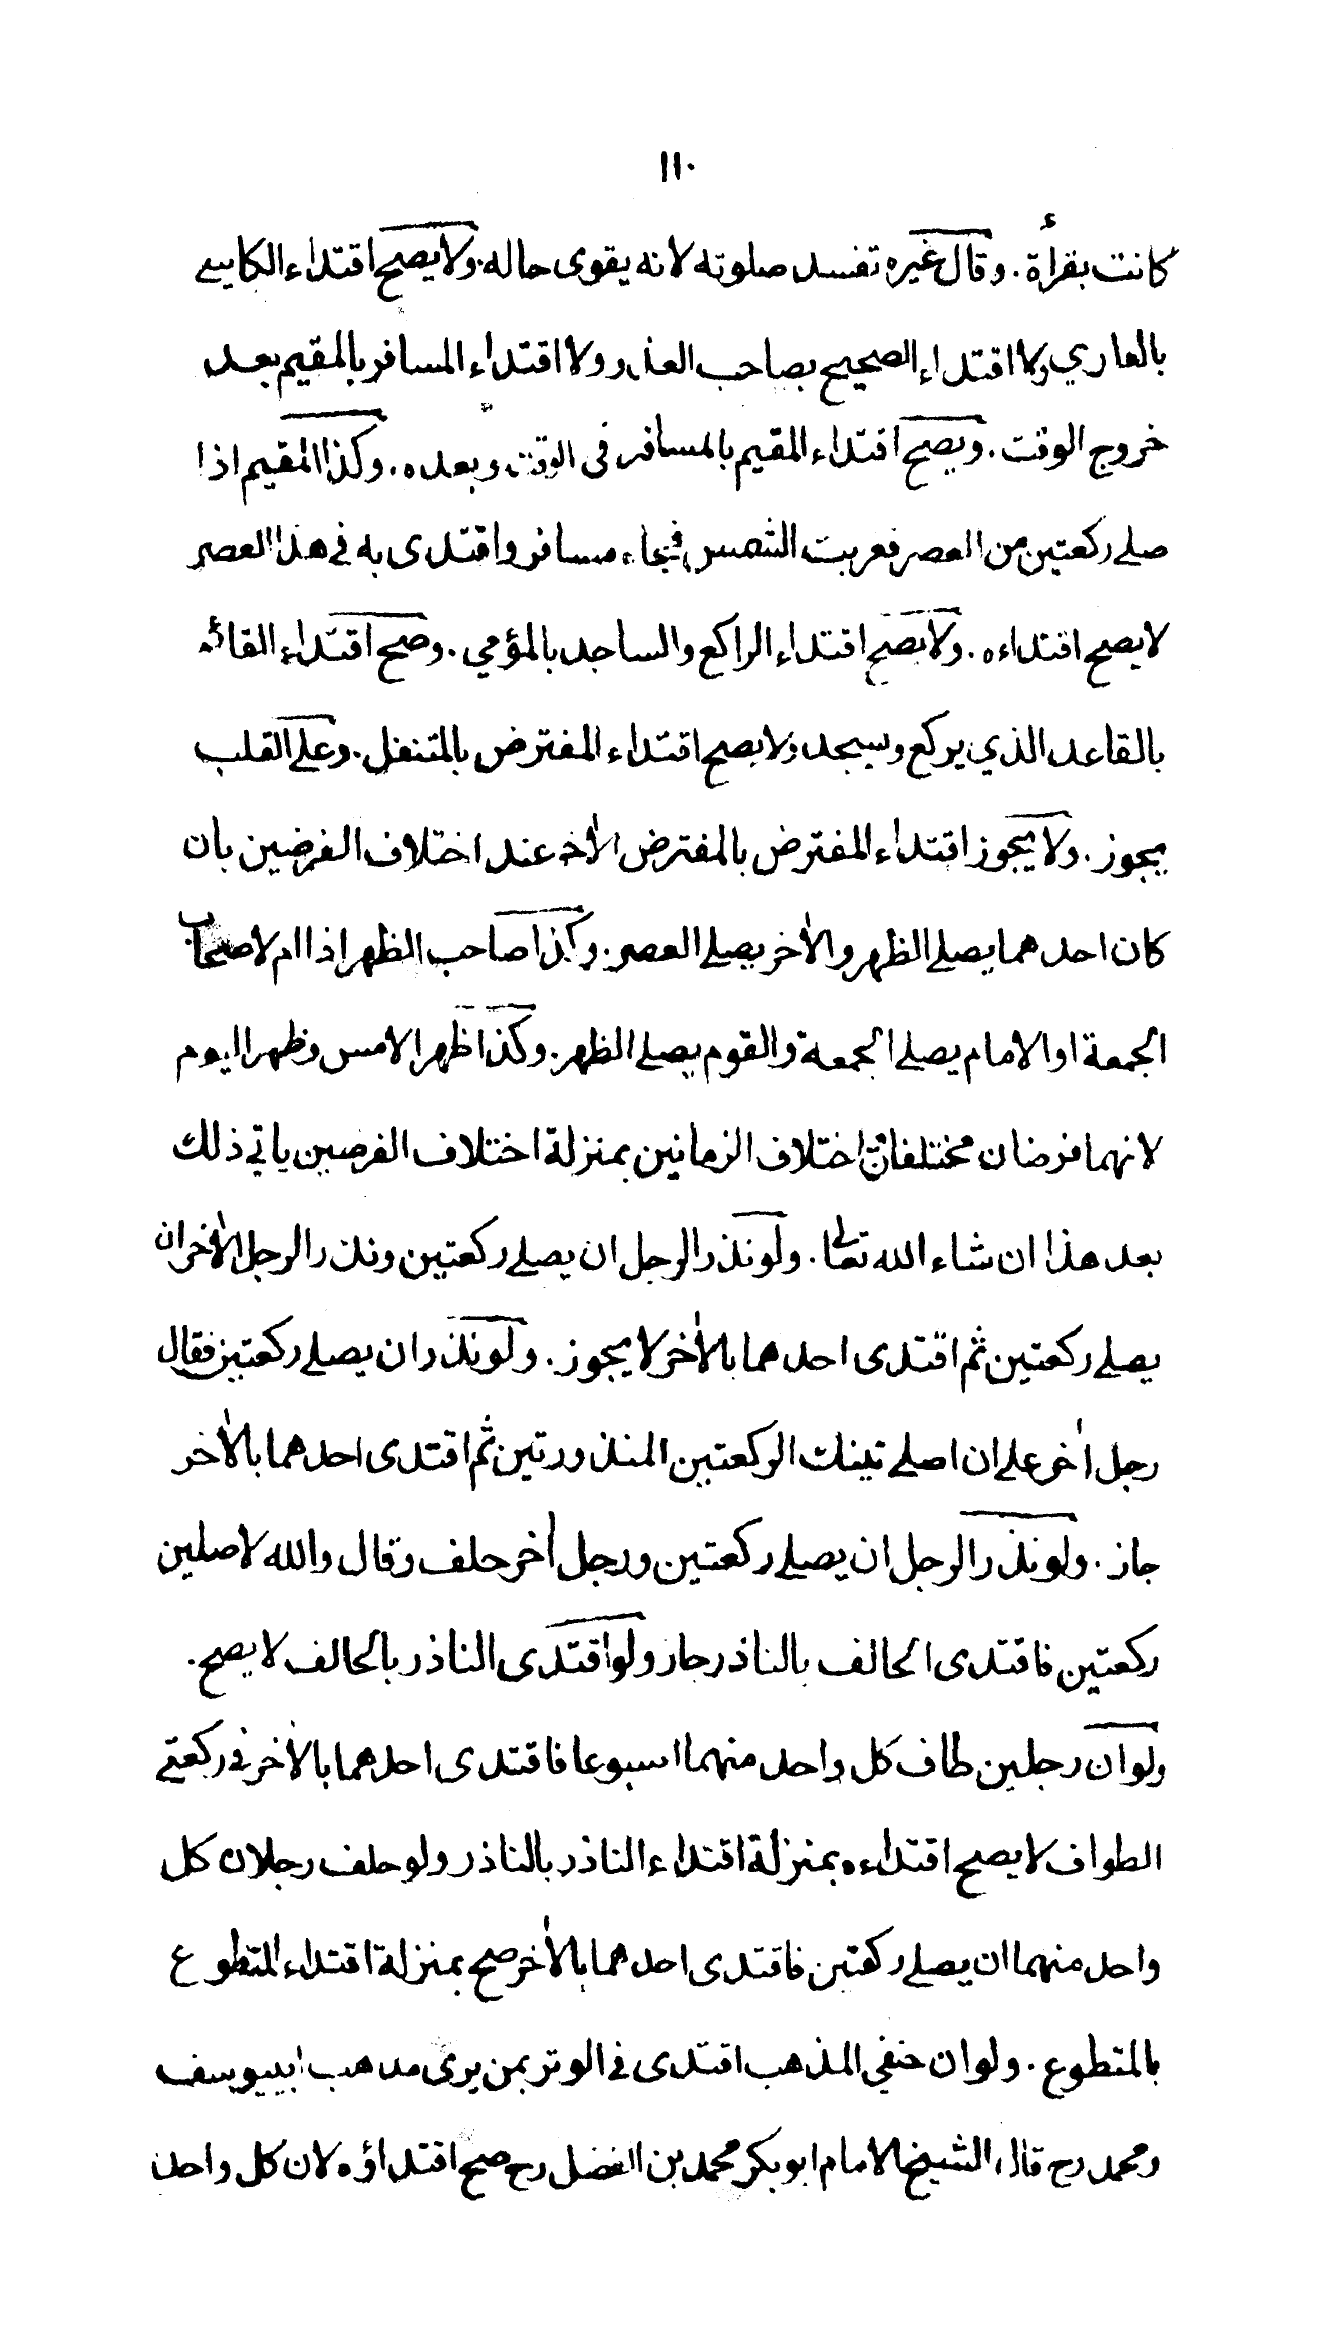 ١١٠
كانت بقرأة . وقال غيره تفسد صلوته لانه يقوى حاله . ولا يصح اقتداء الكاسي
بالعاري ولا اقتداء الصحيح بصاحب العذر ولا اقتداء المسافر بالمقيم بعد
خروج الوقت . ويصح اقتداء المقيم بالمسافر في الوقت وبعده . وكذا المقيم اذا
صلى ركعتين من العصر فغربت الشمس فجاء مسافر واقتدى به في هذا العصر
لا يصح اقتداءه . ولا يصح اقتداء الراكع والساجد بالمؤمي . وصح اقتداء القائم
بالقاعد الذي يركع ويسجد ولا يصح اقتداء المفترض بالمتنفل . وعلى القلب
يجوز . ولا يجوز اقتداء المفترض بالمفترض الأخر عند اختلاف الفرضين بان
كان احدهما يصلي الظهر والأخر يصلي العصر . وكذا صاحب الظهر اذا ام لاصحاب
الجمعة او الامام يصلي الجمعة والقوم يصلي الظهر . وكذا ظهر الامس وظهر اليوم
لانهما فرضان مختلفان اختلاف الزمانين بمنزلة اختلاف الفرضين ياتي ذلك
بعد هذا ان شاء الله تعالى . ولو نذر الرجل ان يصلي ركعتين ونذر الرجل الأخر ان
يصلي ركعتين ثم اقتدى احدهما بالأخر لا يجوز . ولو نذر ان يصلي ركعتين فقال
رجل أخر علي ان اصلي تينك الركعتين المنذورتين ثم اقتدى احدهما بالأخر
جاز . ولو نذر الرجل ان يصلي ركعتين ورجل أخر حلف وقال والله لاصلين
ركعتين فاقتدى الحالف بالناذر جاز ولو اقتدى الناذر بالحالف لا يصح .
ولو ان رجلين طاف كل واحد منهما اسبوعا فاقتدى احدهما بالأخر في ركعتي
الطواف لا يصح اقتداءه بمنزلة اقتداء الناذر بالناذر ولو حلف رجلان كل
واحد منهما ان يصلي ركعتين فاقتدى احدهما بالأخر صح بمنزلة اقتداء المتطوع
بالمتطوع . ولو ان حنفي المذهب اقتدى في الوتر بمن يرى مذهب ابييوسف
ومحمد رح قال الشيخ الامام ابو بكر محمد بن الفضل رح صح اقتداؤه لان كل واحد